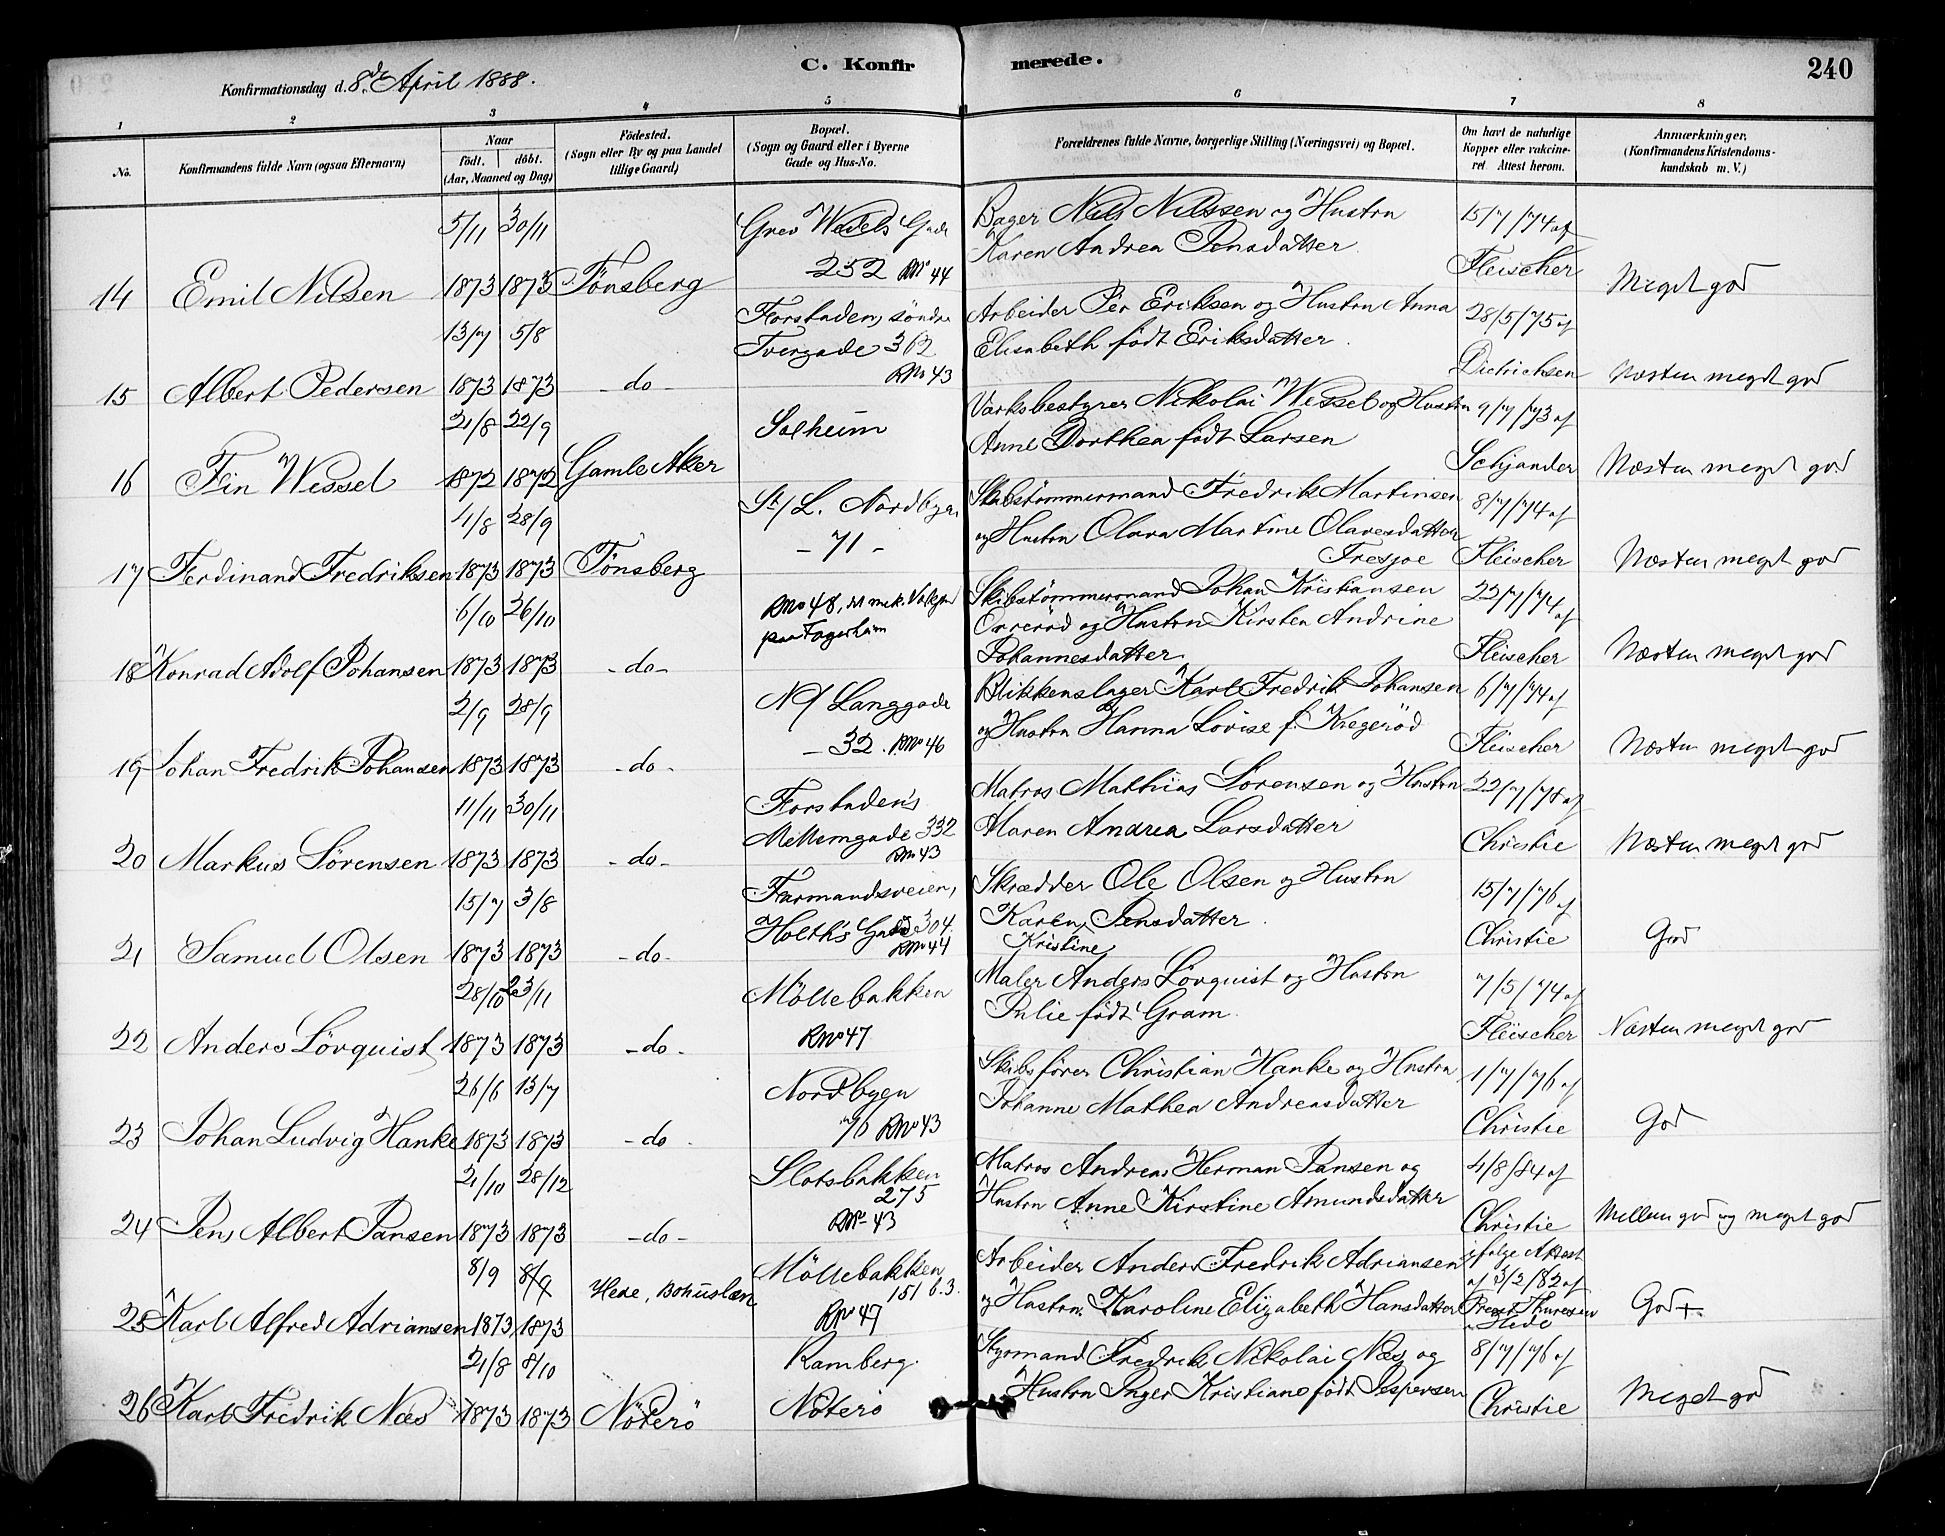 C. Konfirmerede.
240
Konfirmationsdag d. 8de April 1888.
1 2 3 4 5 6 7 8
No.
Konfirmandens fulde Navn (ogsaa Efternavn)
Naar
födt. döbt.
(Aar, Maaned og Dag)
Födested.
(Sogn eller By og paa Landet
tillige Gaard)
Bopæl.
(Sogn og Gaard eller i Byerne
Gade og Hus-No.
Forældrenes fulde Navne, borgerlige Stilling (Næringsvei) og Bopæl.
Om havt de naturlige
Kopper eller vakcine-
ret Attest herom.
Anmærkninger.
(Konfirmandens Kristendoms-
kundskab m. V.)
5/11 30/11 Grev Wedels Gade Bager Nils Nilssen og Hustru 15/7/74 af
252 RNo 44 Karen Andrea Jensdatter Fleischer
14 Emil Nilsen 1873 1873 Tönsberg Meget god
13/7 5/8 Forstaden, söndre Arbeider Per Eriksen og Hustru Anna 28/5/75 af
Tvergade 362 Elisabeth födt Eriksdatter.
RNo 43 Dietrichsen
15 Albert Pedersen 1873 1873 -do- Næsten meget god
21/8 22/9 Solheim Værksbestyrer Nikolai Wessel og Hustru 9/7/73 af
Anne Dorthea födt Larsen
16 Fin Wessel 1872 1872 Gamle Aker Schjander Næsten meget god
4/8 28/9 St/L. Nordbyen Skibstömmermand Fredrik Martinsen 8/7/74 af
-71- og Hustru Olava Martine Olavesdatter
17 Ferdinand Fredriksen 1873 1873 Tönsberg Fresjoe Fleischer Næsten meget god
6/10 26/10 RNo 48, paa Fagerheim Skibstömmermand Johan Kristiansen 22/7/74 af
Orreröd og Hustru Kirsten Andrine
18 Konrad Adolf Johansen 1873 1873 -do- Johannesdatter Fleischer Næsten meget god
2/9 28/9 N/ Langgade Blikkenslager Karl Fredrik Johansen 6/7/74 af
-32. RNo 46 og Hustru Hanna Lovise f. Kregeröd
19 Johan Fredrik Johansen 1873 1873 -do- Fleischer Næsten meget god
11/11 30/11 Forstadens Matros Mathias Sörensen og Hustru 22/7/78 af
Mellemgade 332 Maren Andrea Larsdatter
20 Markus Sörensen 1873 1873 -do- RNo 43 Christie Næsten meget god
15/7 3/8 Farmandsveien, Skrædder Ole Olsen og Hustru 15/7/76 af
Holths Gade 304. Karen Jensdatter
21 Samuel Olsen 1873 1873 -do- RNo 44 Kristine Christie God
28/10 23/11 Möllebakken Maler Anders Lövquist og Hustru 7/5/74 af
Julie födt Gram
22 Anders Lövquist 1873 1873 -do- RNo 47 Fleischer Næsten meget god
26/6 13/7 Nordbyen Skibsförer Christian Hanke og Hustru 1/7/76 af
76 RNo 43 Johanne Mathea Andreasdatter
23 Johan Ludvig Hanke 1873 1873 -do- Christie God
21/10 28/12 Slotsbakken Matros Andreas Herman Jansen og 4/8/84 af
275 Hustru Anne Kirstine Amundsdatter
24 Jens Albert Jansen 1873 1873 -do- RNo 43 Christie Mellem god og meget god
8/9 8/9 Hede, Bohuslæn Möllebakken Arbeider Anders Fredrik Adriansen ifölge Attest
151 b.3. af 3/2/82 af
25 Karl Alfred Adriansen 1873 1873 RNo 47 og Hustru Karoline Elizabeth Hansdatter Prest Thuresen Hede God +
21/8 8/10 Ramberg Styrmand Fredrik Nikolai Næs og 8/7/76 af
26 Karl Fredrik Næs 1873 1873 Nöterö Nöterö Hustru Inger Kristiane födt Jespersen Christie Meget god